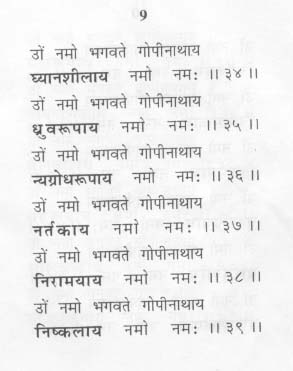 9
उों नमो भगवते गोपीनाथाय
घ्यानशीलाय नमो नमः ।। ३४ ।।
उों नमो भगवते गोपीनाथाय
ध्रुवरूपाय नमो नमः ।। ३५ ।।
उों नमो भगवते गोपीनाथाय
न्यग्रोधरूपाय नमो नमः ।। ३६ ।।
उों नमो भगवते गोपीनाथाय
नर्तकाय नमो नमः ।। ३७ ।।
उों नमो भगवते गोपीनाथाय
निरामयाय नमो नमः ।। ३८ ।।
उों नमो भगवते गोपीनाथाय
निष्कलाय नमो नमः ।। ३९ ।।